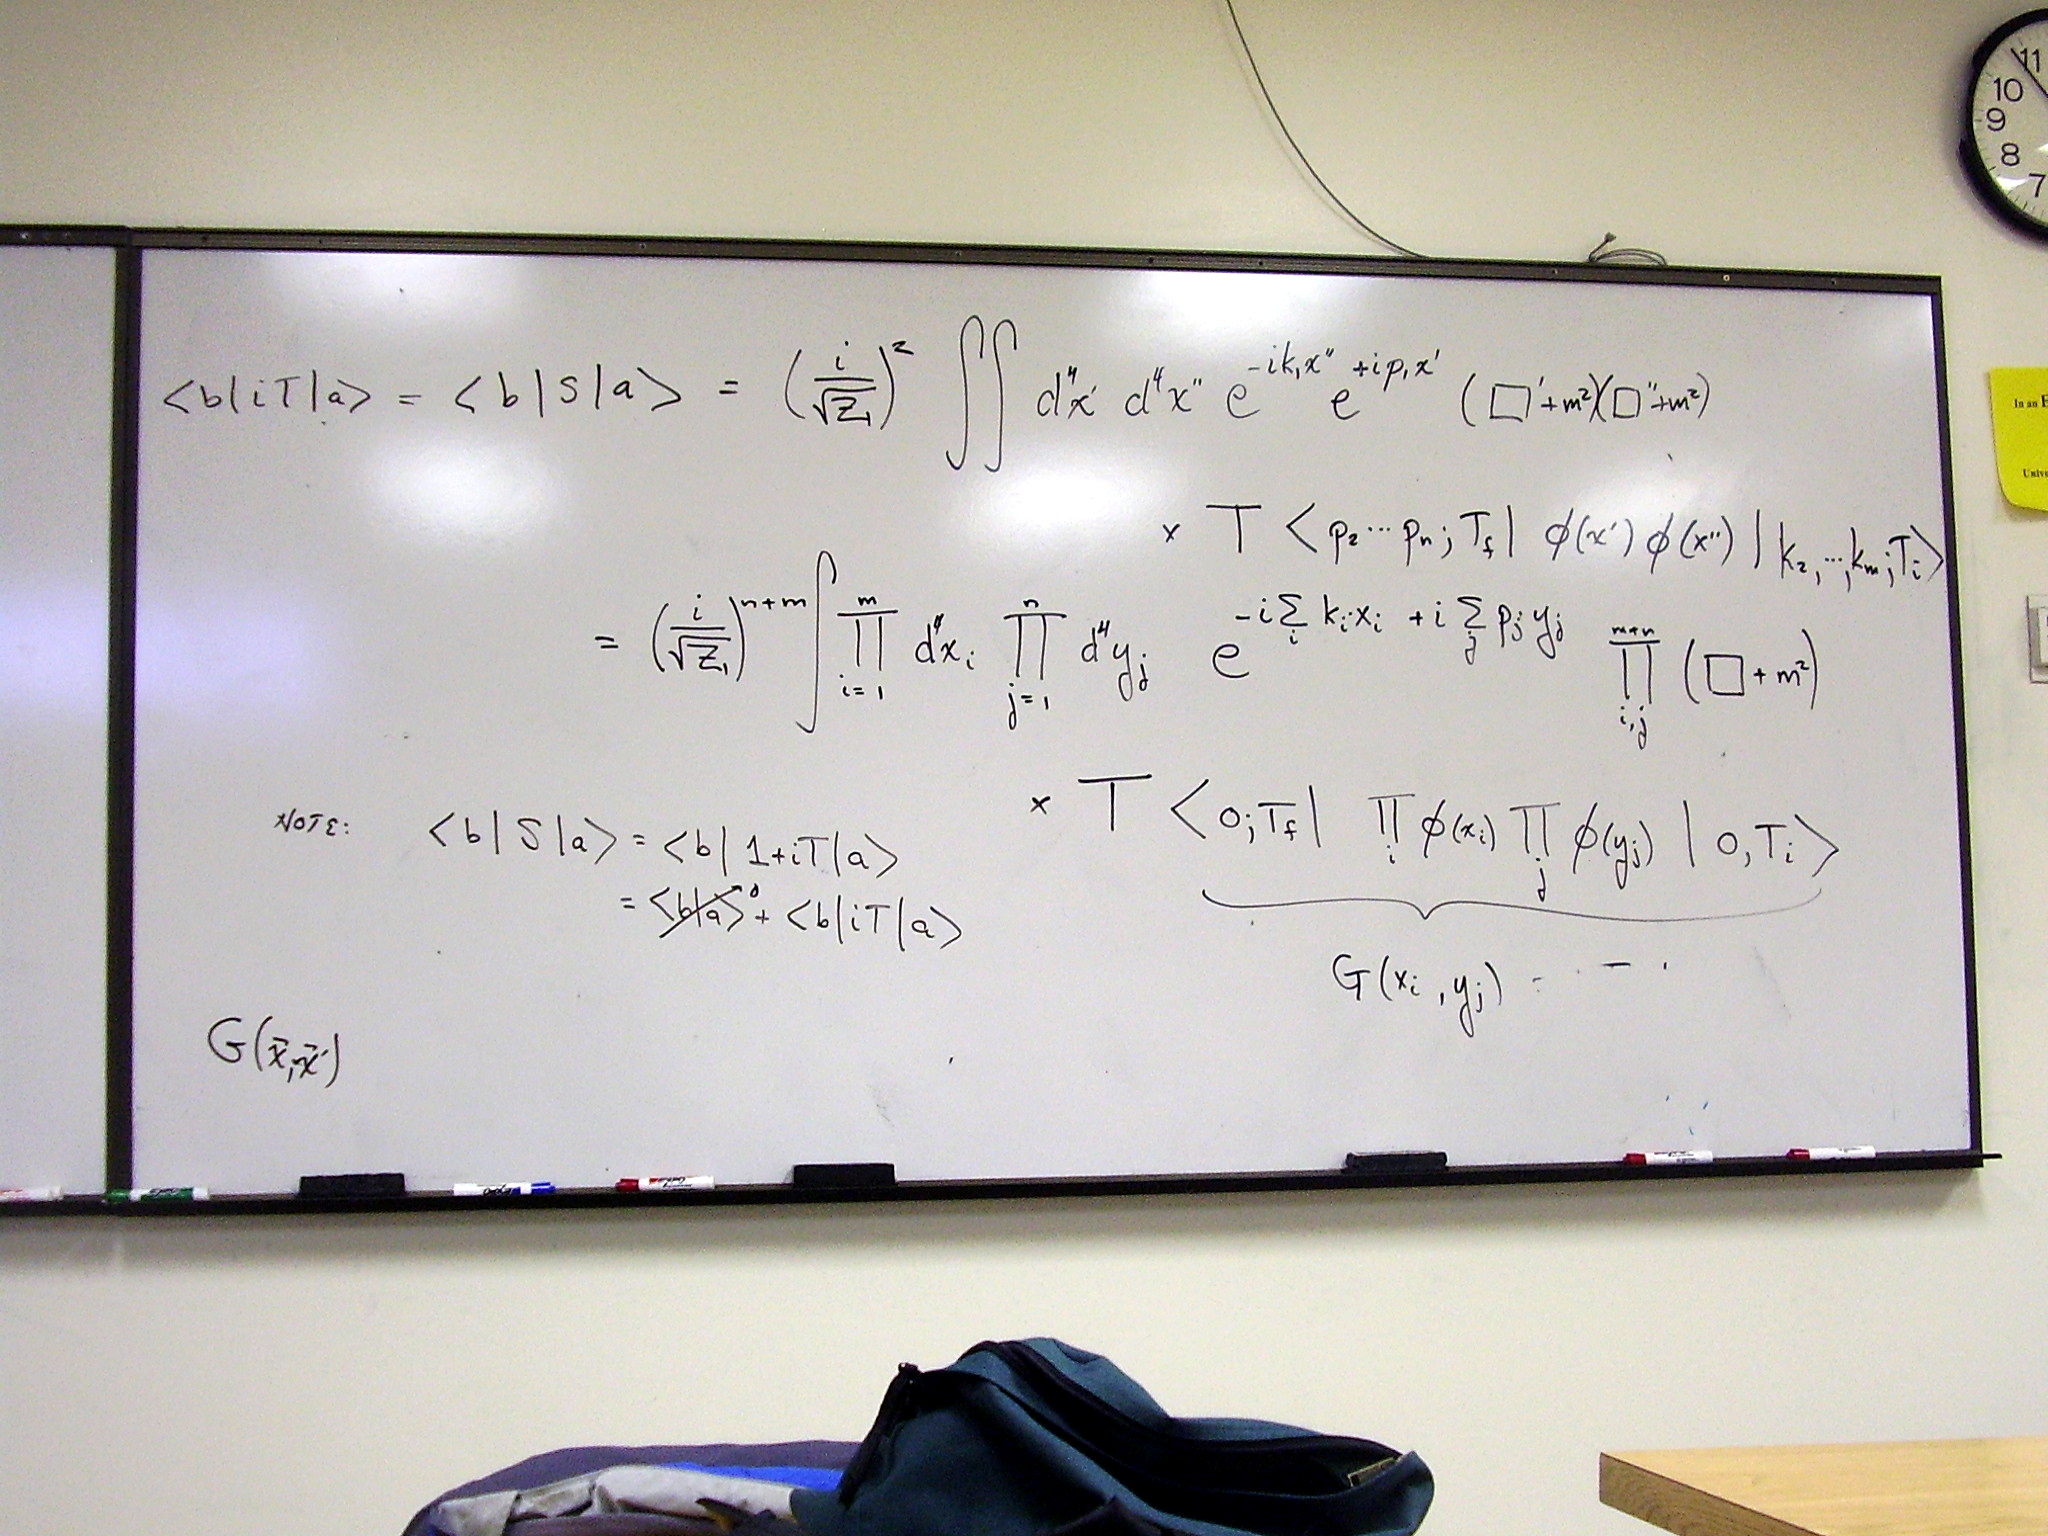 <b|iT|a> = <b|S|a> = (i/√Z₁)² ∫∫ d⁴x' d⁴x'' e^{-ik₁x''} e^{+ip₁x'} (□'+m²)(□''+m²)
× T <p₂...pₙ; T_f| φ(x') φ(x'') |k₂,...,kₘ; T_i>
= (i/√Z₁)^{n+m} ∫ ∏_{i=1}^{m} d⁴x_i ∏_{j=1}^{n} d⁴y_j e^{-i∑_i k_i x_i + i∑_j p_j y_j} ∏_{i,j}^{m+n} (□+m²)
× T <0; T_f| ∏_i φ(x_i) ∏_j φ(y_j) |0, T_i>
NOTE: <b|S|a> = <b|1+iT|a>
= <b|a>⁰ + <b|iT|a>
G(x_i, y_j)
G(x⃗, x⃗')
11
10
9
8
7
In an